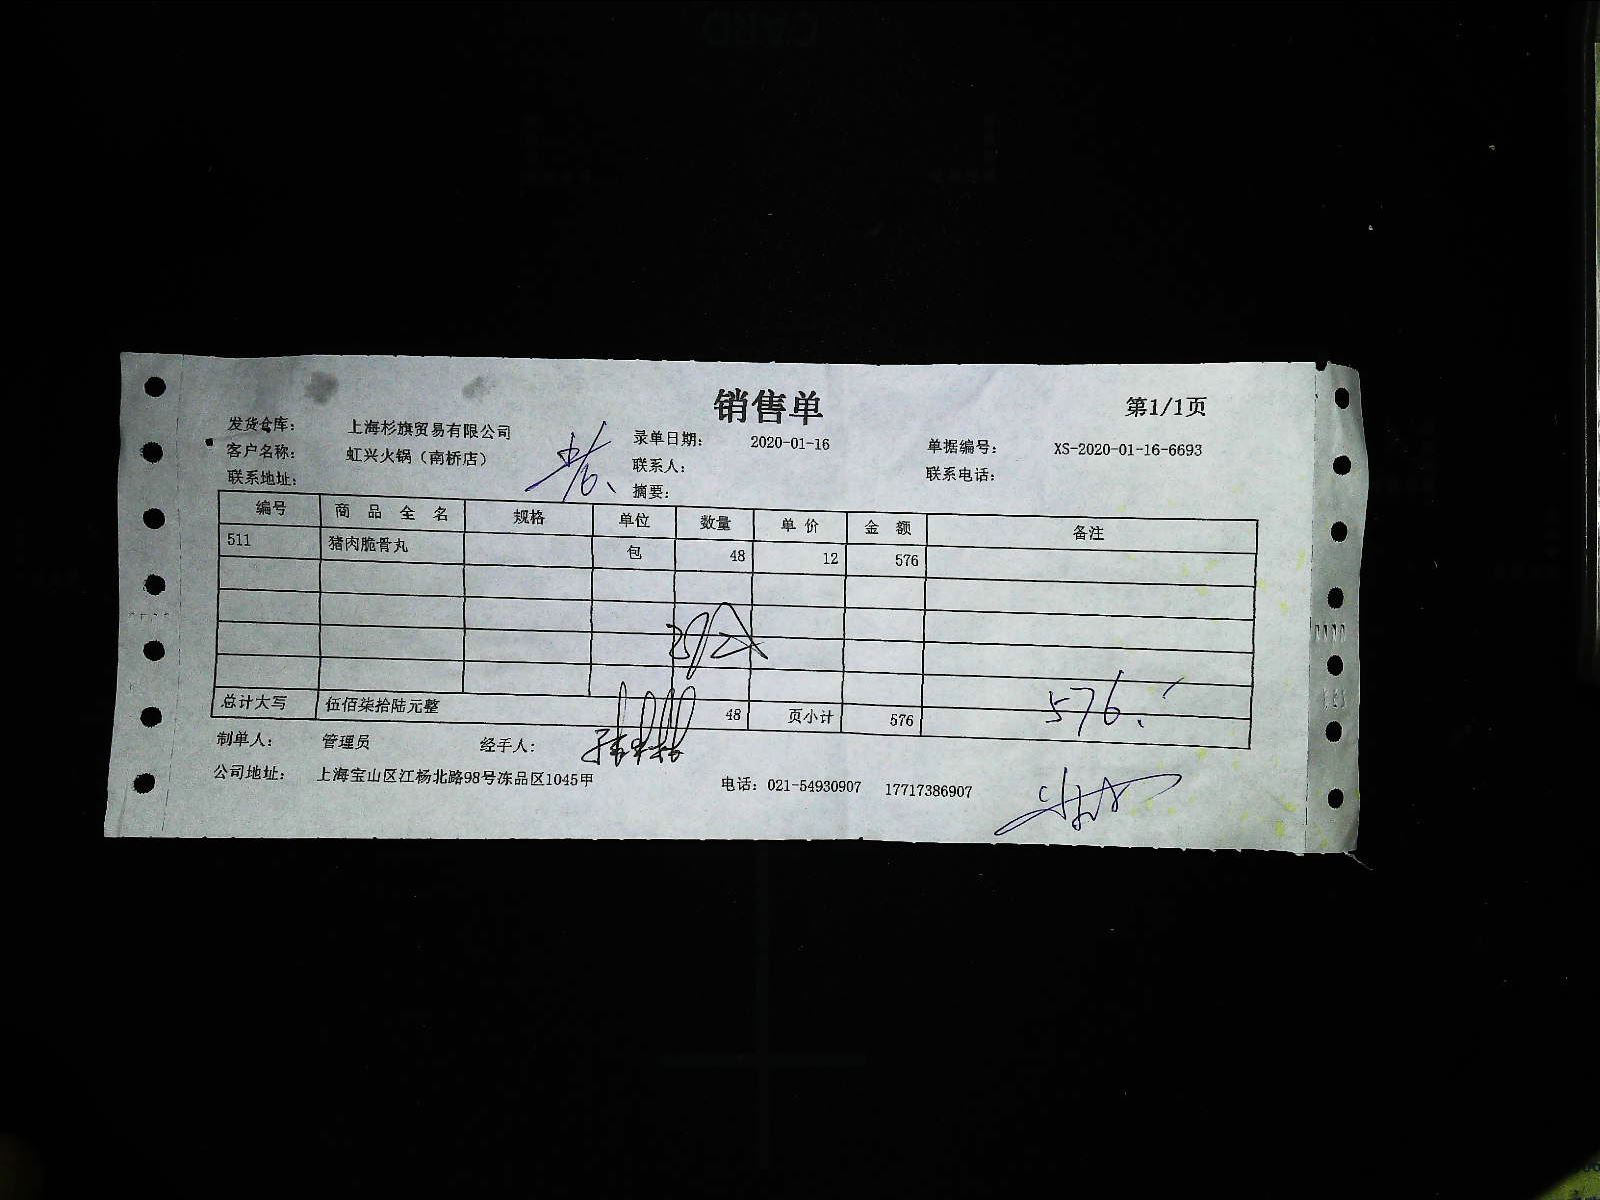 销售单
第1/1页
发货仓库： 上海杉旗贸易有限公司 录单日期： 2020-01-16 单据编号： XS-2020-01-16-6693
客户名称： 虹兴火锅（南桥店） 联系人： 联系电话：
联系地址： 摘要：
编号 商品全名 规格 单位 数量 单价 金额 备注
511 猪肉脆骨丸 包 48 12 576
总计大写 伍佰柒拾陆元整 48 页小计 576
576.
制单人： 管理员 经手人：
公司地址： 上海宝山区江杨北路98号冻品区1045甲 电话：021-54930907 17717386907